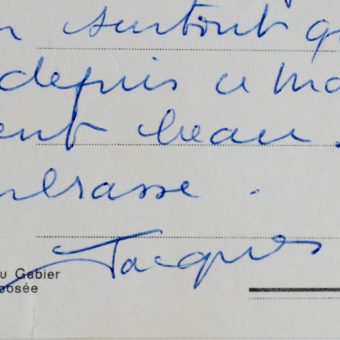 n surtout q
depuis ce ma
ent beau.
mbrasse.
Jacques
u Gabier
posée